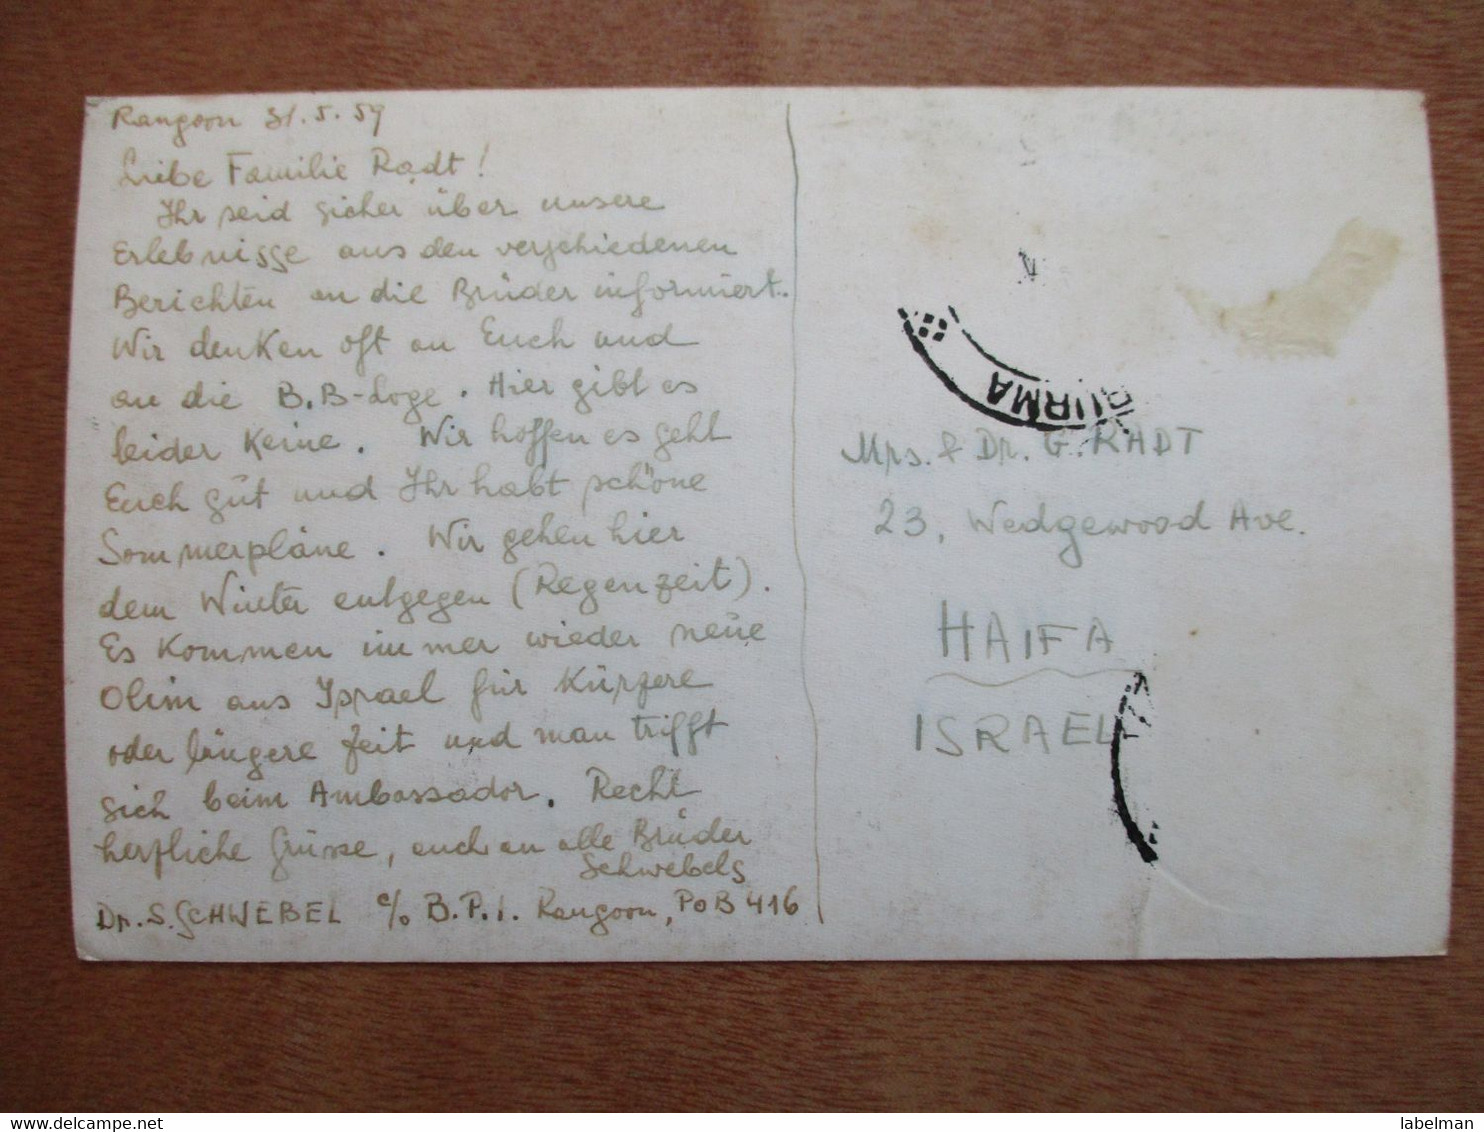 Rangoon 31.5.59
Liebe Familie Radt!
Ihr seid sicher über unsere
Erlebnisse aus den verschiedenen
Berichten an die Brüder informiert.
Wir denken oft an Euch und
an die B.B-Loge. Hier gibt es
leider keine. Wir hoffen es geht
Euch gut und Ihr habt schöne
Sommerpläne. Wir gehen hier
dem Winter entgegen (Regenzeit).
Es kommen immer wieder neue
Olim aus Israel für kürzere
oder längere Zeit und man trifft
sich beim Ambassador. Recht
herzliche Grüsse, auch an alle Brüder
Schwebels
Dr. S. SCHWEBEL c/o B.P.I. Rangoon, PoB 416
BURMA
Mrs. & Dr. G. RADT
23, Wedgewood Ave.
HAIFA
ISRAEL
https://www.delcampe.net
labelman